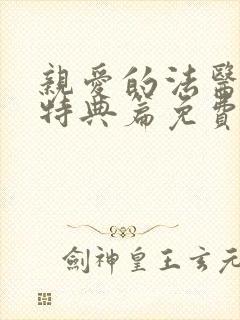 親愛的法醫
特典篇免費
劍神皇王玄元